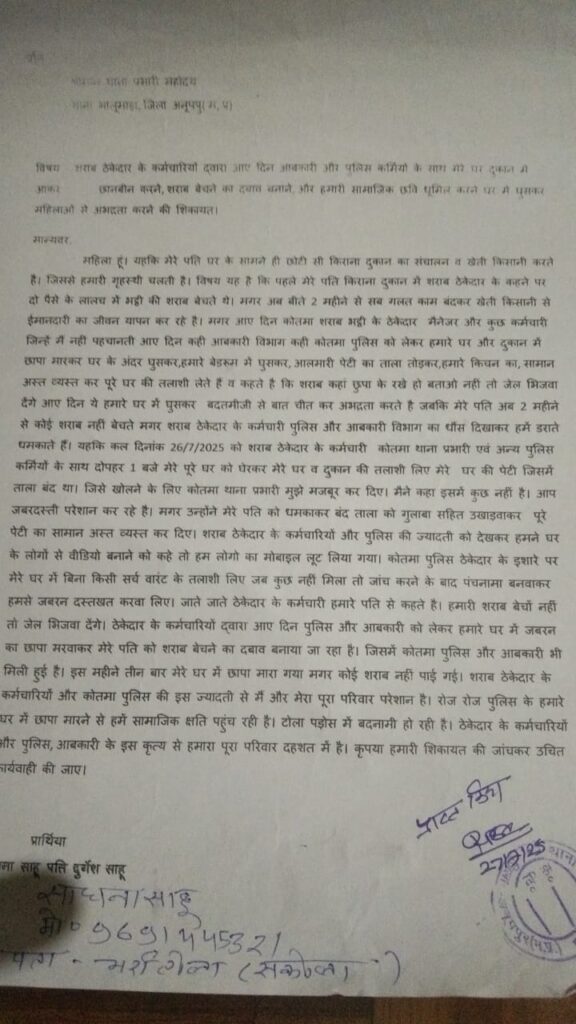 प्रति
श्रीमान थाना प्रभारी महोदय
थाना भालूमाड़ा, जिला अनूपपुर( म, प्र)
विषय शराब ठेकेदार के कर्मचारियों द्वारा आए दिन आबकारी और पुलिस कर्मियों के साथ मेरे घर दुकान में
आकर छानबीन करने, शराब बेचने का दबाव बनाने, और हमारी सामाजिक छवि धूमिल करने घर में घुसकर
महिलाओं से अभद्रता करने की शिकायत।
मान्यवर,
महिला हूं। यहकि मेरे पति घर के सामने ही छोटी सी किराना दुकान का संचालन व खेती किसानी करते
है। जिससे हमारी गृहस्थी चलती है। विषय यह है कि पहले मेरे पति किराना दुकान में शराब ठेकेदार के कहने पर
दो पैसे के लालच में भट्टी की शराब बेचते थे। मगर अब बीते 2 महीने से सब गलत काम बंदकर खेती किसानी से
ईमानदारी का जीवन यापन कर रहे है। मगर आए दिन कोतमा शराब भट्टी के ठेकेदार मैनेजर और कुछ कर्मचारी
जिन्हें मैं नहीं पहचानती आए दिन कही आबकारी विभाग कही कोतमा पुलिस को लेकर हमारे घर और दुकान में
छापा मारकर घर के अंदर घुसकर,हमारे बेडरूम में घुसकर, आलमारी पेटी का ताला तोड़कर,हमारे किचन का, सामान
अस्त व्यस्त कर पूरे घर की तलाशी लेते है व कहते है कि शराब कहां छुपा के रखे हो बताओ नहीं तो जेल भिजवा
देंगे आए दिन ये हमारे घर में घुसकर बदतमीजी से बात चीत कर अभद्रता करते है जबकि मेरे पति अब 2 महीने
से कोई शराब नहीं बेचते मगर शराब ठेकेदार के कर्मचारी पुलिस और आबकारी विभाग का धौंस दिखाकर हमें डराते
धमकाते हैं। यहकि कल दिनांक 26/7/2025 को शराब ठेकेदार के कर्मचारी कोतमा थाना प्रभारी एवं अन्य पुलिस
कर्मियों के साथ दोपहर 1 बजे मेरे पूरे घर को घेरकर मेरे घर व दुकान की तलाशी लिए मेरे घर की पेटी जिसमें
ताला बंद था। जिसे खोलने के लिए कोतमा थाना प्रभारी मुझे मजबूर कर दिए। मैने कहा इसमें कुछ नहीं है। आप
जबरदस्ती परेशान कर रहे है। मगर उन्होंने मेरे पति को धमकाकर बंद ताला को गुलाबा सहित उखाड़वाकर पूरे
पेटी का सामान अस्त व्यस्त कर दिए। शराब ठेकेदार के कर्मचारियों और पुलिस की ज्यादती को देखकर हमने घर
के लोगों से वीडियो बनाने को कहे तो हम लोगो का मोबाइल लूट लिया गया। कोतमा पुलिस ठेकेदार के इशारे पर
मेरे घर में बिना किसी सर्च वारंट के तलाशी लिए जब कुछ नहीं मिला तो जांच करने के बाद पंचनामा बनवाकर
हमसे जबरन दस्तखत करवा लिए। जाते जाते ठेकेदार के कर्मचारी हमारे पति से कहते है। हमारी शराब बेचों नहीं
तो जेल भिजवा देंगे। ठेकेदार के कर्मचारियों द्वारा आए दिन पुलिस और आबकारी को लेकर हमारे घर में जबरन
का छापा मरवाकर मेरे पति को शराब बेचने का दबाव बनाया जा रहा है। जिसमें कोतमा पुलिस और आबकारी भी
मिली हुई है। इस महीने तीन बार मेरे घर में छापा मारा गया मगर कोई शराब नहीं पाई गई। शराब ठेकेदार के
कर्मचारियों और कोतमा पुलिस की इस ज्यादती से मैं और मेरा पूरा परिवार परेशान है। रोज रोज पुलिस के हमारे
घर में छापा मारने से हमें सामाजिक क्षति पहुंच रही है। टोला पड़ोस में बदनामी हो रही है। ठेकेदार के कर्मचारियों
और पुलिस,आबकारी के इस कृत्य से हमारा पूरा परिवार दहशत में है। कृपया हमारी शिकायत की जांचकर उचित
कार्यवाही की जाए।
प्राप्त किया
27/7/25
थाना
प्रार्थिया
साहू पति दुर्गेश साहू
साधना साहू
मो० 9691445321
पता -